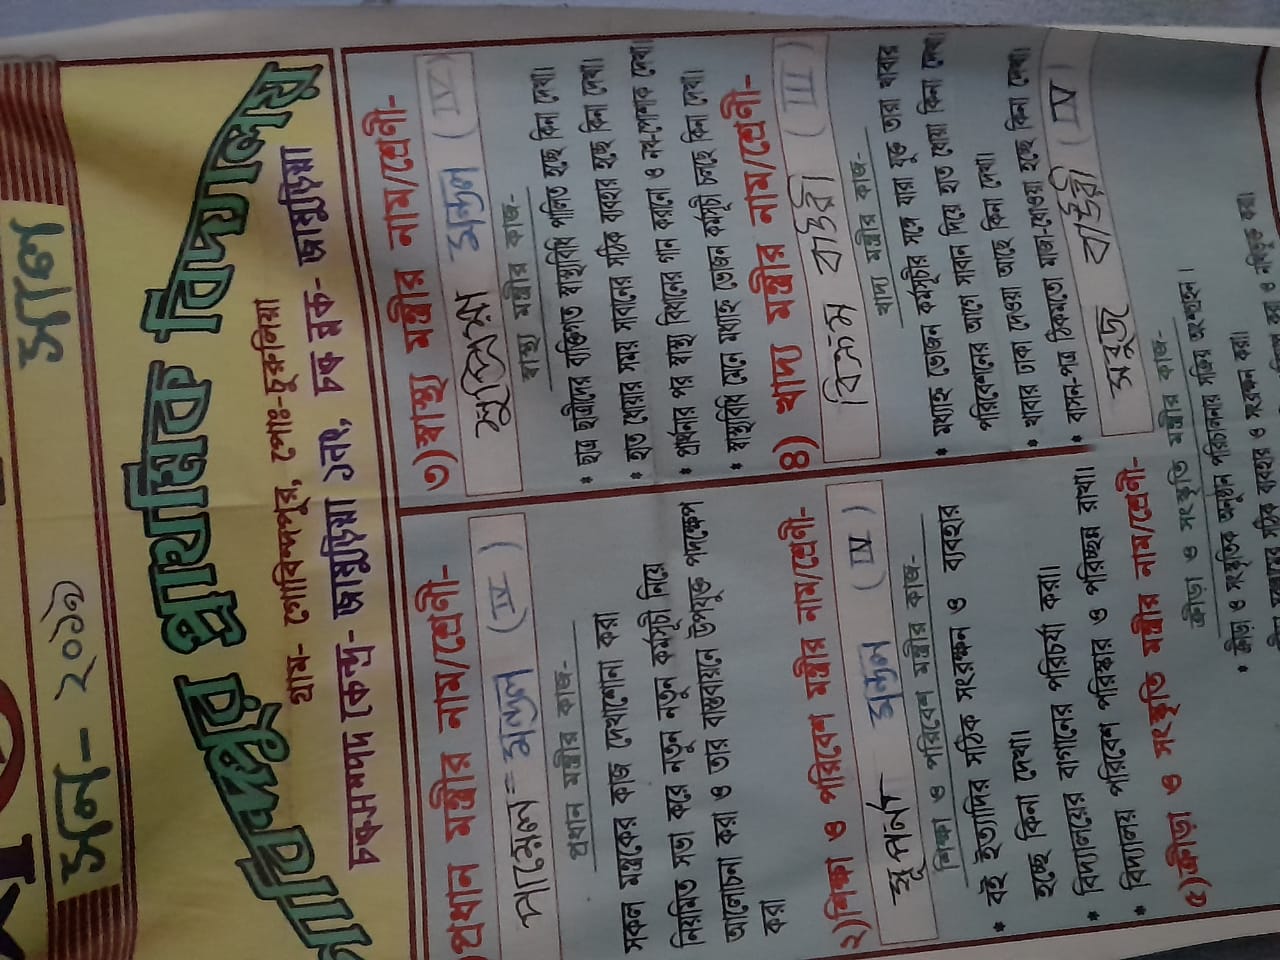 সন- ২০১৯ সাল
গোবিন্দপুর প্রাথমিক বিদ্যালয়
গ্রাম- গোবিন্দপুর, পোঃ-চুরুলিয়া
চক্রসম্পদ কেন্দ্র- জামুড়িয়া ১নং, চক্র ব্লক- জামুড়িয়া
প্রধান মন্ত্রীর নাম/শ্রেণী-
পায়েল মন্ডল (IV)
প্রধান মন্ত্রীর কাজ-
সকল মন্ত্রকের কাজ দেখাশোনা করা
নিয়মিত সভা করে নতুন নতুন কর্মসূচী নিয়ে
আলোচনা করা ও তার বাস্তবায়নে উপযুক্ত পদক্ষেপ
করা
২) শিক্ষা ও পরিবেশ মন্ত্রীর নাম/শ্রেণী-
সুপর্ণা মন্ডল (IV)
শিক্ষা ও পরিবেশ মন্ত্রীর কাজ-
* বই ইত্যাদির সঠিক সংরক্ষন ও ব্যবহার
হচ্ছে কিনা দেখা।
* বিদ্যালয়ের বাগানের পরিচর্যা করা।
* বিদ্যালয় পরিবেশ পরিস্কার ও পরিচ্ছন্ন রাখা।
৩) স্বাস্থ্য মন্ত্রীর নাম/শ্রেণী-
সুপ্রিয়া মন্ডল (IV)
স্বাস্থ্য মন্ত্রীর কাজ-
* ছাত্র ছাত্রীদের ব্যক্তিগত স্বাস্থ্যবিধি পালিত হচ্ছে কিনা দেখা।
* হাত ধোয়ার সময় সাবানের সঠিক ব্যবহার হচ্ছে কিনা দেখা।
* প্রার্থনার পর স্বাস্থ্য বিধানের গান করানো ও নখ-পোশাক দেখা।
* স্বাস্থ্যবিধি মেনে মধ্যাহ্ন ভোজন কর্মসূচী চলছে কিনা দেখা।
৪) খাদ্য মন্ত্রীর নাম/শ্রেণী-
বাউরী (III)
খাদ্য মন্ত্রীর কাজ-
* মধ্যাহ্ন ভোজন কর্মসূচীর সঙ্গে যারা যুক্ত তারা খাবার
পরিবেশনের আগে সাবান দিয়ে হাত ধোয়া কিনা দেখা।
* খাবার ঢাকা দেওয়া আছে কিনা দেখা।
* বাসন-পত্র ঠিকমতো মাজা-ধোওয়া হচ্ছে কিনা দেখা।
৫) ক্রীড়া ও সংস্কৃতি মন্ত্রীর নাম/শ্রেণী-
সবুজ বাউরী (IV)
ক্রীড়া ও সংস্কৃতি মন্ত্রীর কাজ-
* ক্রীড়া ও সংস্কৃতিক অনুষ্ঠান পরিচালনায় সক্রিয় অংশগ্রহন।